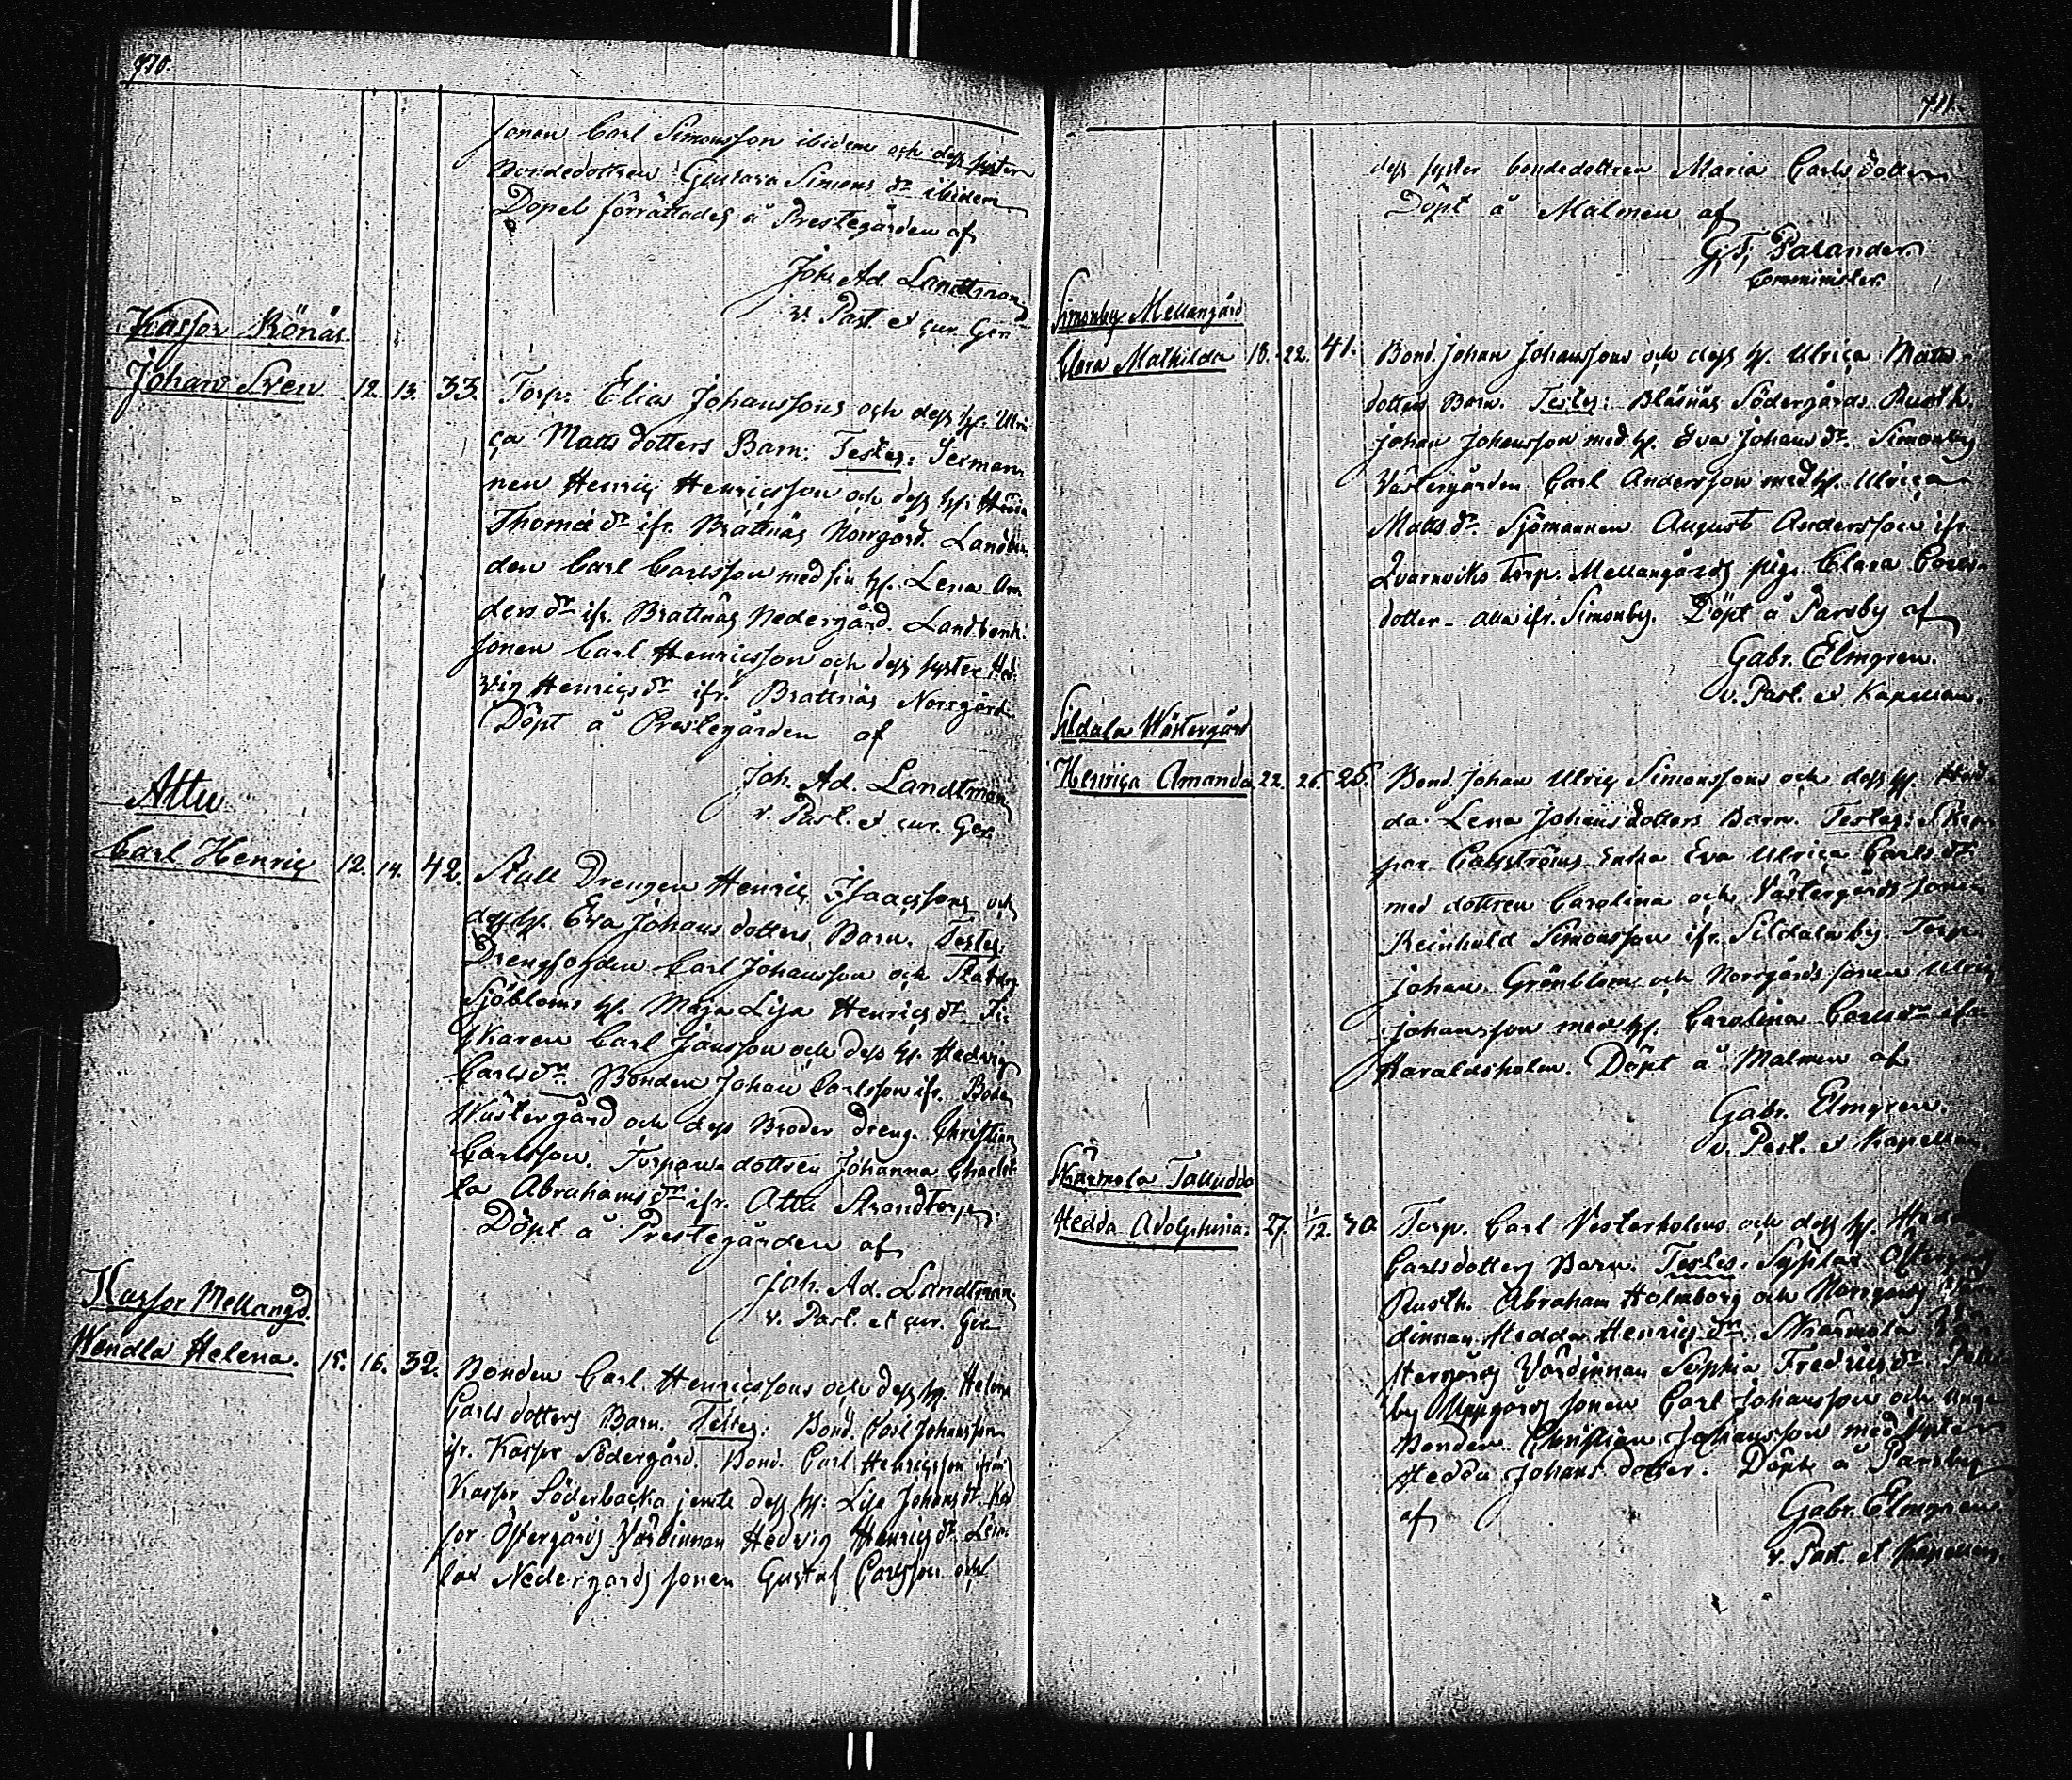 710.
sonen Carl Simonsson ibidem och dess syster
Bondedottren Gustava Simons dr ibidem
Dopet förrättades å Prestegården af
Joh. Ad. Landtman
v. Past. et cur. Ger.
Kassor Rönäs.
Johan Sven 12. 13. 33. Torp. Elias Johanssons och dess h. Ulri
ca Matts dotters Barn. Testes: Sexman
nen Henric Henricsson och dess h.
Thomæ dr ifr. Brattnäs Norrgård. Landbon
den Carl Carlsson med sin h. Lena An
ders dr ifr. Brattnäs Nedergård. Landbonde
sonen Carl Henricsson och dess syster Hed
vig Henrics dr ifr. Brattnäs Norrgård
Döpt å Prestegården af
Joh. Ad. Landtman
v. Past. et cur. Ger.
Attu
Carl Henric 12. 14. 42. Stall Drengen Henric Isaacssons och
dess h. Eva Johans dotters Barn. Testes:
Drengfogden Carl Johansson och
Sjöbloms h. Maja Lisa Henrics dr Fi
skaren Carl Jansson och dess h. Hedvig
Carls dr Bonden Johan Carlsson ifr. Boda
Wästergård och dess Broder dreng. Christian
Carlsson. Torpare dottren Johanna Charlot
ta Abrahams dr ifr. Attu Strandtorp.
Döpt å Prestegården af
Joh. Ad. Landtman
v. Past. et cur. Ger.
Kassor Mellangd.
Wendla Helena. 15. 16. 32. Bonden Carl Henricssons och dess h. Helena
Carls dotters Barn. Testes: Bond. Carl Johansson
ifr. Kassor Södergård. Bond. Carl Henricsson ifrån
Kassor Söderbacka jemte dess h: Lisa Johans dr. Kas
sor Östergårds Värdinnan Hedvig Henrics dr Lem
lax Nedergårds sonen Gustaf Carlsson och
711.
dess syster bondedottren Maria Carls dotter
Döpt å Malmen af
G. T. Palander
Comminister.
Simonby Mellangård
Clara Mathilda 18. 22. 41. Bond. Johan Johanssons och dess h. Ulrica Matts
dotters Barn. Testes: Bläsnäs Södergårds Rusth.
Johan Johansson med h. Eva Johans dr. Simonby
Västergården Carl Andersson med h. Ulrica
Matts dr. Sjömannen August Andersson ifr.
Qvarnviks torp. Mellangårds pig. Clara Carls
dotter - alla ifr. Simonby. Döpt å Parsby af
Gabr. Elmgren.
v. Past. et Kapellan.
Sildala Wästergård
Henrica Amanda 22. 26. 25. Bond. Johan Ulric Simonssons och dess h. Hed
da Lena Johans dotters Barn. Testes:
Enka Eva Ulrica Carls dr
med dottren Carolina och Västergårds sonen
Reinhold Simonsson ifr. Sildala by. Torp.
Johan Grönblom och Norrgårds sonen Ulric
Johansson med h. Carolina Carls dr ifr.
Haraldsholm. Döpt å Malmen af
Gabr. Elmgren.
v. Past. et Kapellan.
Skärmola Talludda
Hedda Adolphina. 27. 1/12. 30. Torp. Carl Vesterholms och dess h. Hedda
Carlsdotters Barn. Testes. Sypslax Östergårds
Rusth. Abraham Holmborg och Norrgårds Vär
dinnan Hedda Henrics dr. Skärmola Wä
stergårds Värdinnan Sophia Fredrics dr
by Uppgårds sonen Carl Johansson och unga
Bonden Christian Johansson med syster
Hedda Johans dotter. Döpt å Parsby
af
Gabr. Elmgren
v. Past. et Kapellan.